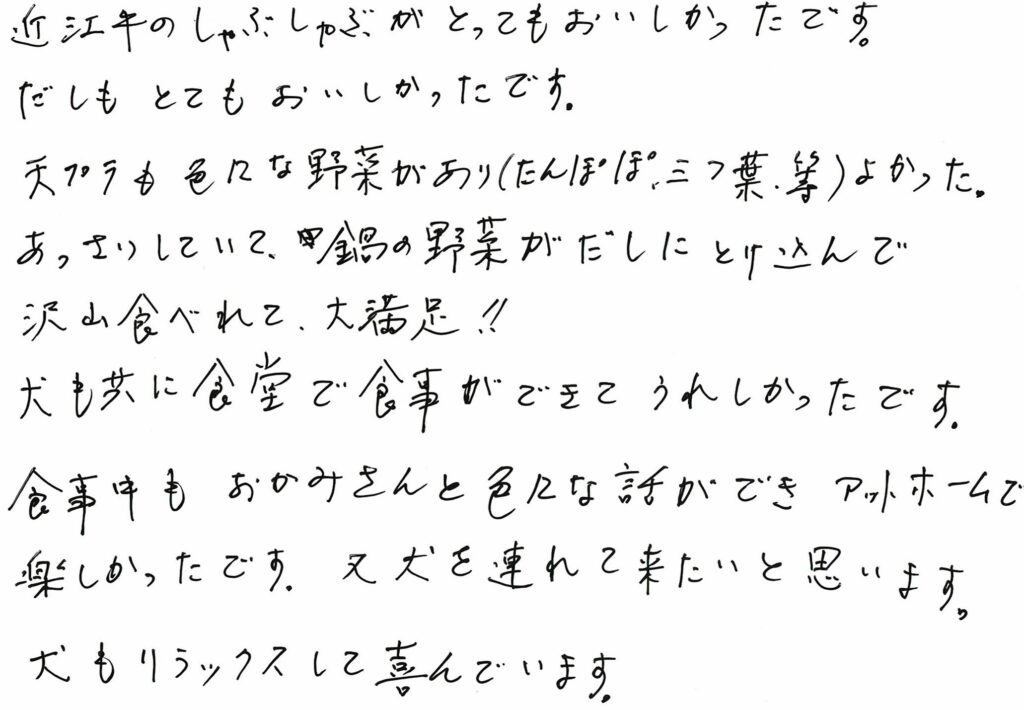 近江牛のしゃぶしゃぶがとってもおいしかったです。
だしもとてもおいしかったです。
天プラも色々な野菜があり(たんぽぽ、三つ葉、等)よかった。
あっさりしていて、鍋の野菜がだしにとけ込んで
沢山食べれて、大満足!!
犬も共に食堂で食事ができてうれしかったです。
食事中もおかみさんと色々な話ができアットホームで
楽しかったです。又犬を連れて来たいと思います。
犬もリラックスして喜んでいます。